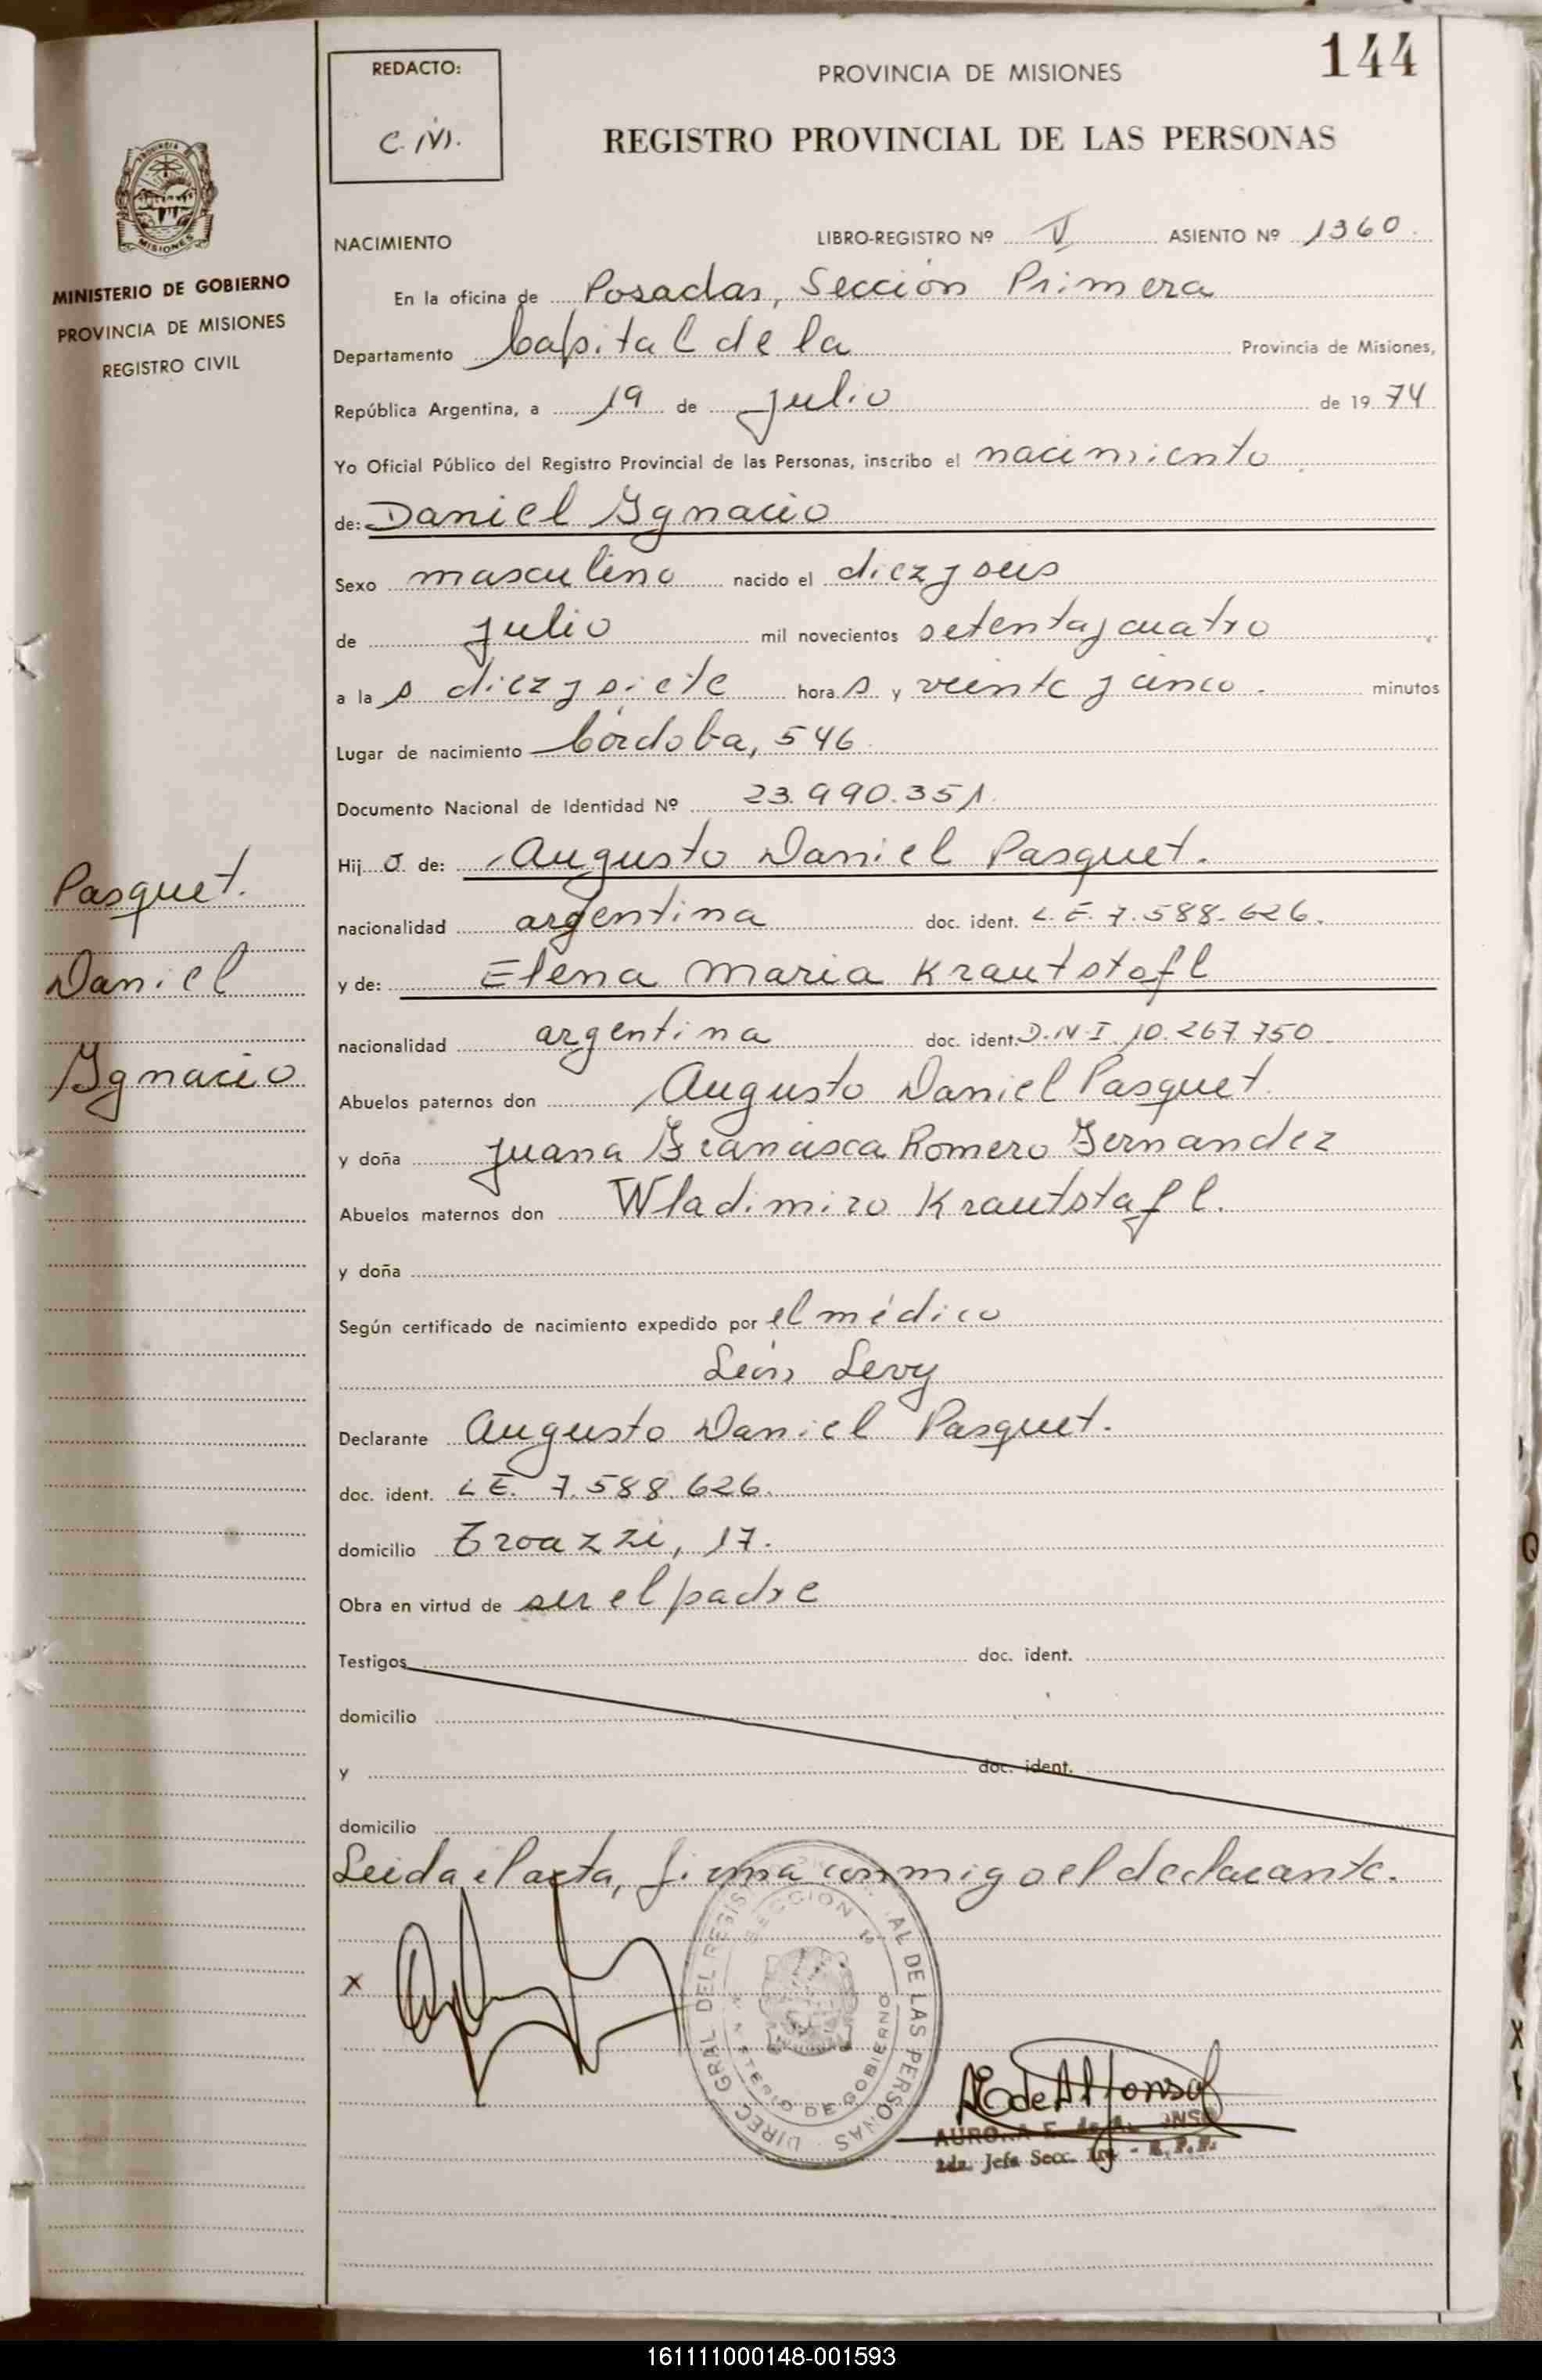 144
REDACTO:
PROVINCIA DE MISIONES
REGISTRO PROVINCIAL DE LAS PERSONAS
MISIONES
MINISTERIO DE GOBIERNO
PROVINCIA DE MISIONES
REGISTRO CIVIL
NACIMIENTO LIBRO-REGISTRO Nº V ASIENTO Nº 1360.
En la oficina de Posadas, Sección Primera
Departamento Capital de la Provincia de Misiones,
República Argentina, a 19 de julio de 19 74
Yo Oficial Público del Registro Provincial de las Personas, inscribo el nacimiento
de: Daniel Ygnacio
Sexo masculino nacido el diez y seis
de julio mil novecientos setenta y cuatro
a la s diez y siete hora s y veinte y cinco. minutos
Lugar de nacimiento Córdoba, 546
Documento Nacional de Identidad Nº 23.990.351.
Hij o de: Augusto Daniel Pasquet.
nacionalidad argentina doc. ident. L.E. 7.588.626.
y de: Elena Maria Krautstofl
nacionalidad argentina doc. ident. D.N.I. 10.267.750
Abuelos paternos don Augusto Daniel Pasquet.
y doña Juana Francisca Romero Fernandez
Abuelos maternos don Wladimiro Krautstafl.
y doña
Según certificado de nacimiento expedido por el médico
León Levy
Declarante Augusto Daniel Pasquet.
doc. ident. L.E. 7.588.626.
domicilio Troazzi, 17.
Obra en virtud de ser el padre
Testigos doc. ident.
domicilio
y doc. ident.
domicilio
Leida el acta, firma conmigo el declarante.
x
Pasquet.
Daniel
Ygnacio
SECCION
DIREC GRAL DEL REGIS AL DE LAS PERSONAS
DE GOBIERNO
Jefa Secc.
161111000148-001593